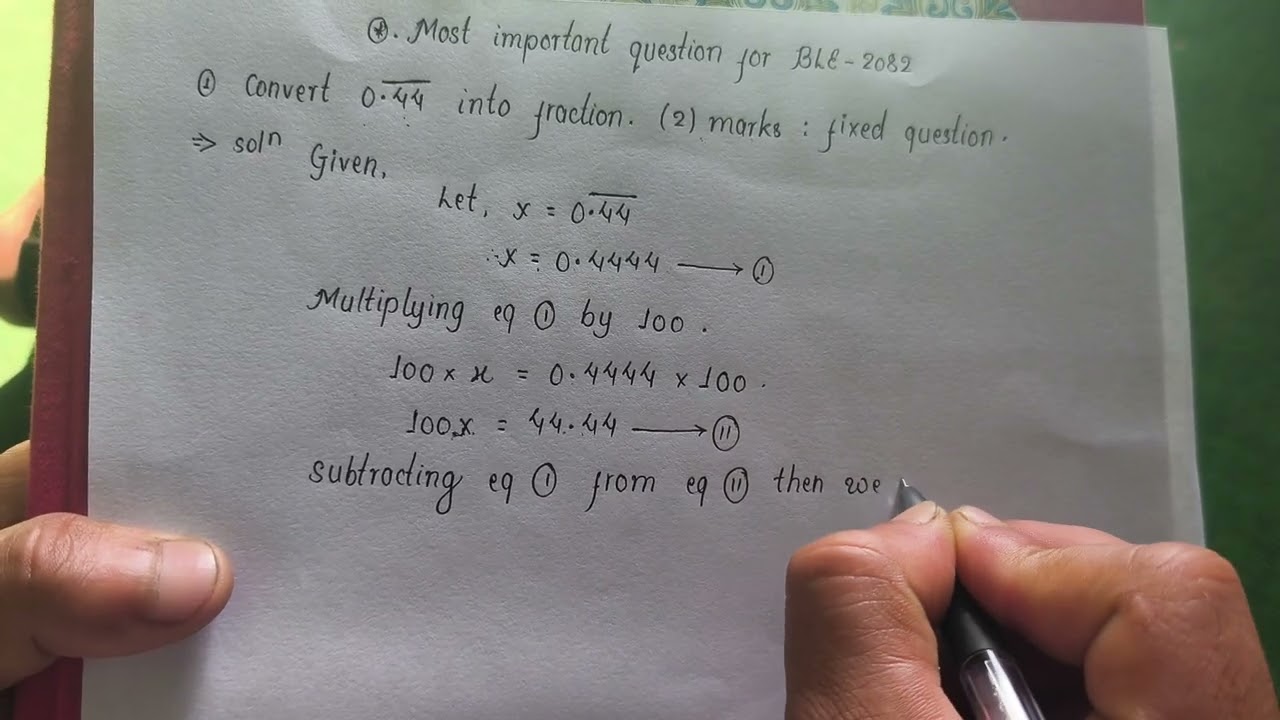 ⊛. Most important question for BLE-2082
① Convert 0.4̅4̅ into fraction. (2) marks : fixed question.
⇒ solⁿ Given,
Let, x = 0.4̅4̅
∴x = 0.4444 ⟶ ①
Multiplying eq ① by 100.
100 × x = 0.4444 × 100.
100x = 44.44 ⟶ ⑪
subtracting eq ① from eq ⑪ then we